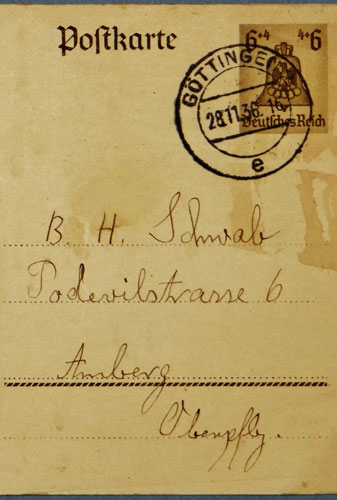 Postkarte
6+4 4+6
Deutsches Reich
GÖTTINGEN
28.11.36. 16
e
B. H. Schwab
Podevilstrasse 6
Amberg
Oberpflz.